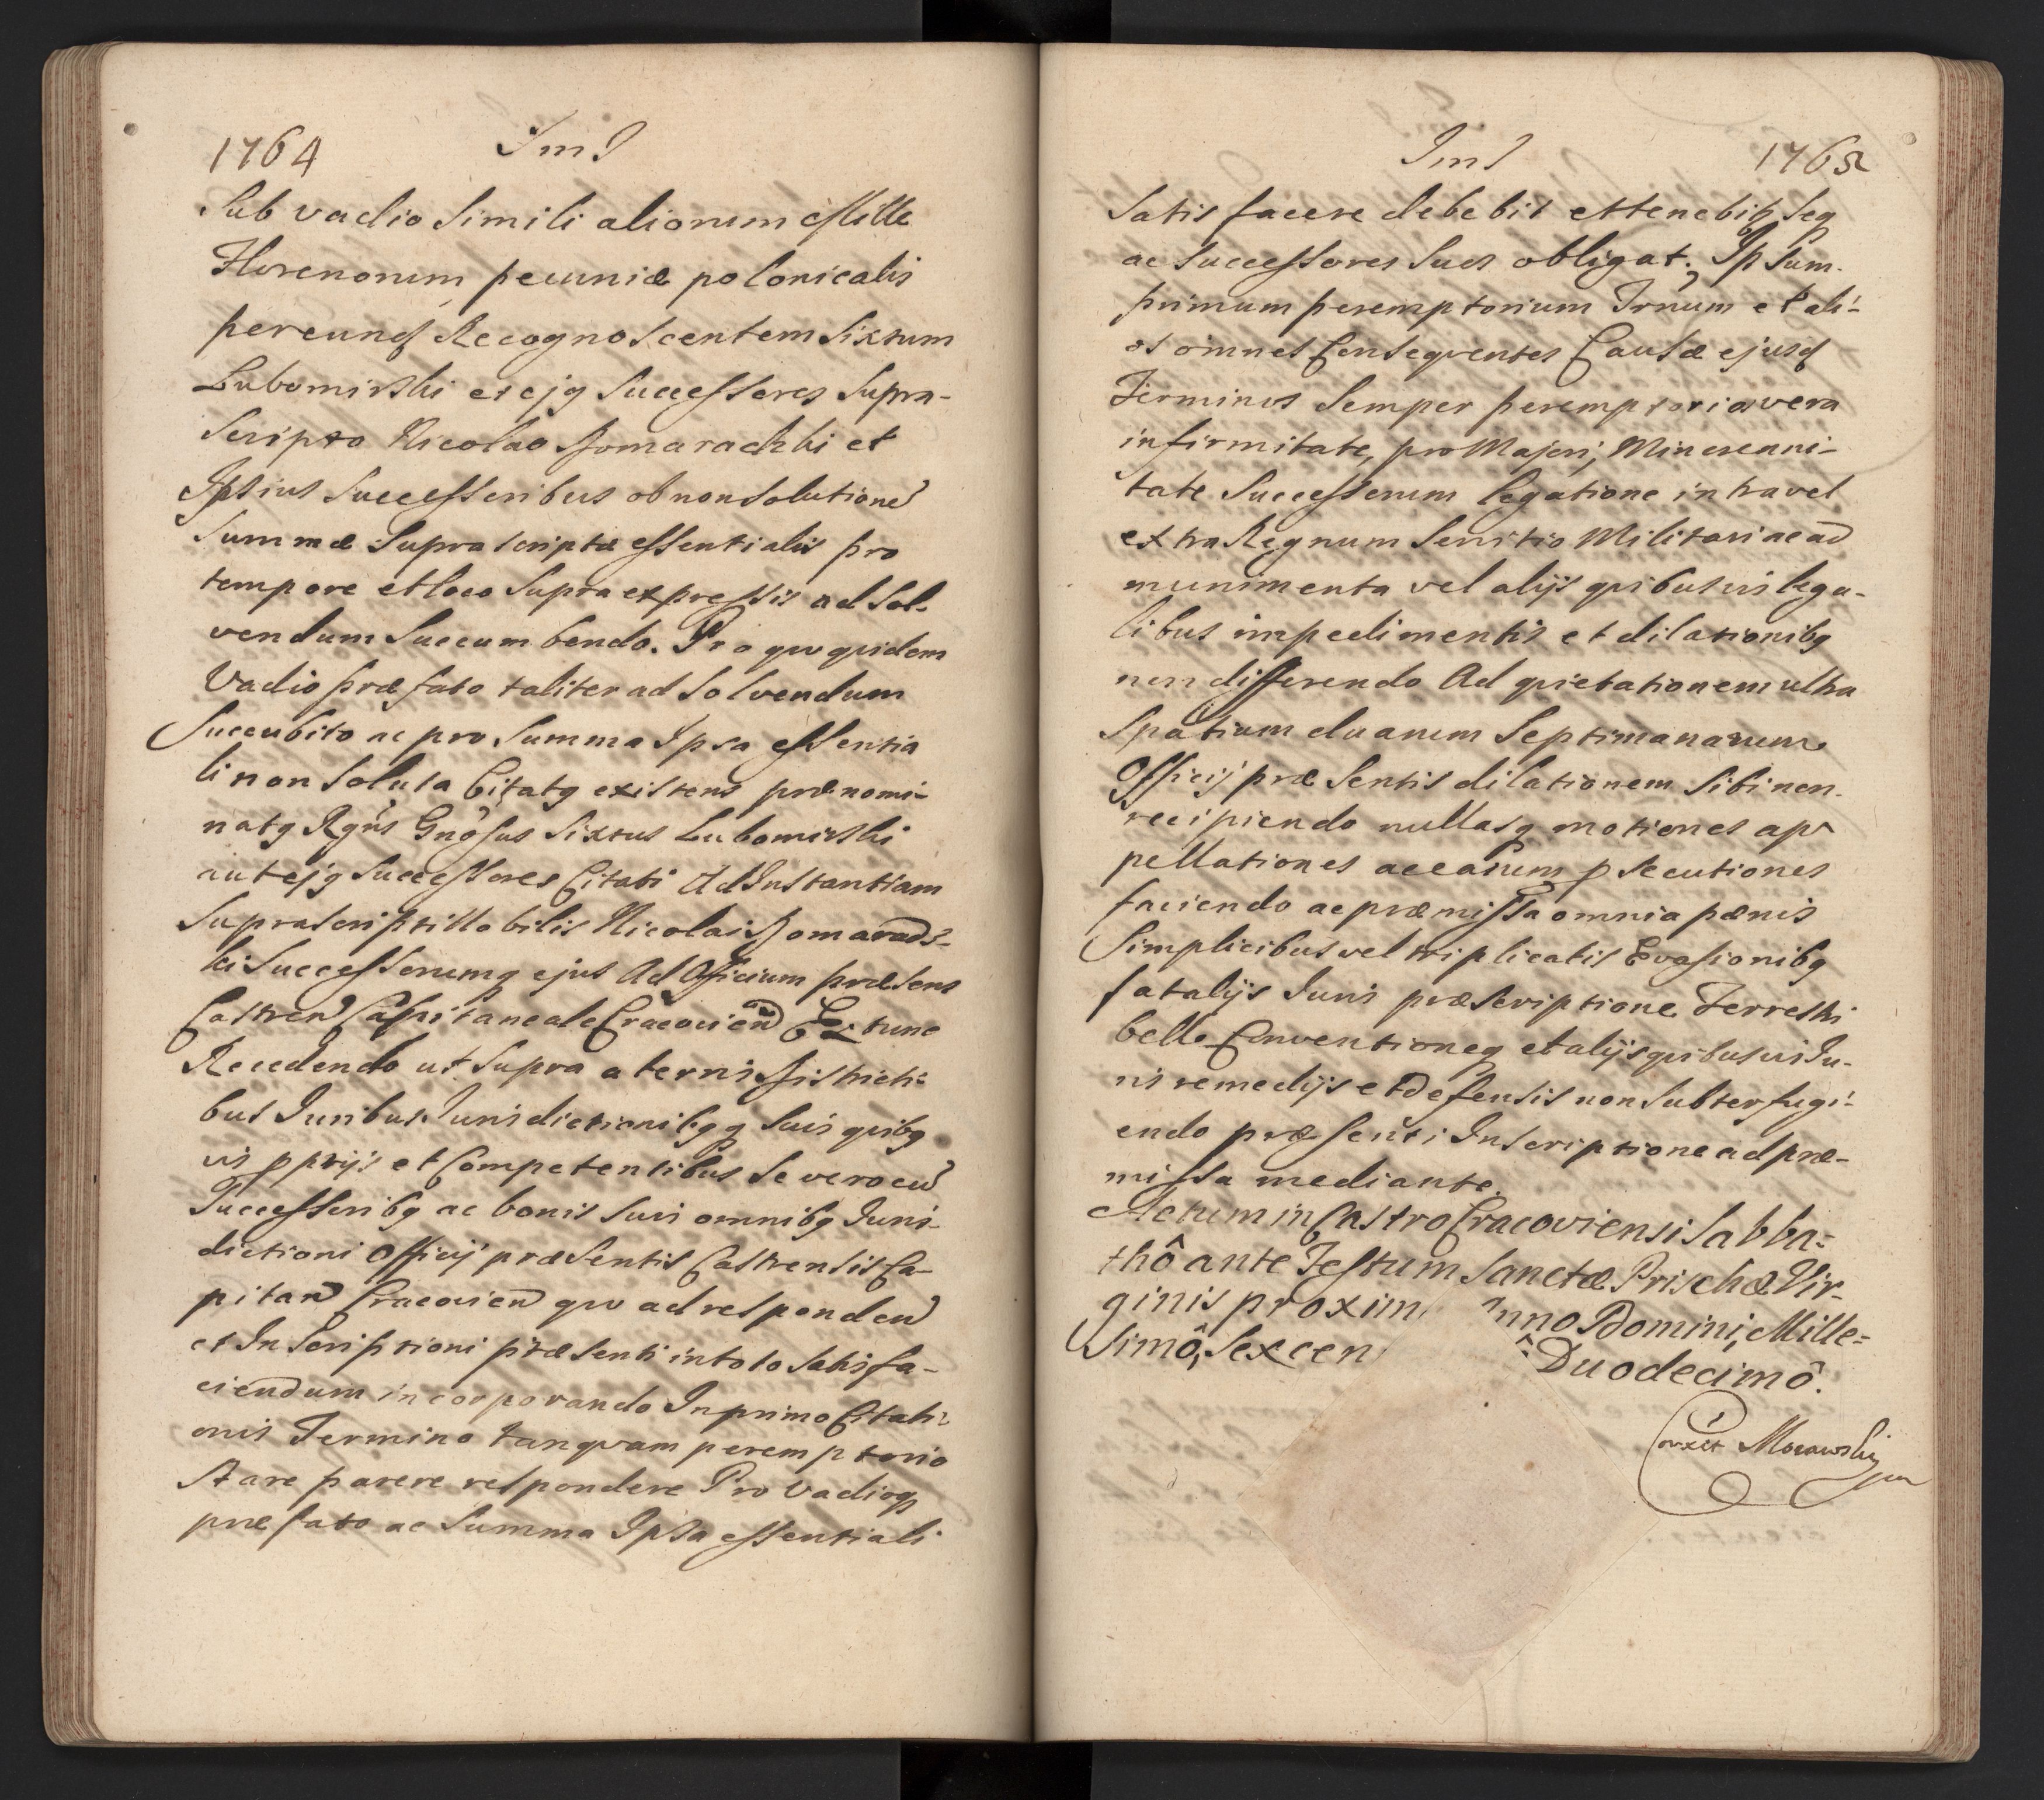 1764
ImI
Sub vadio Simili aliorum Mille
Florenorum pecuniæ polonicalis
per eund Recognoscentem Sixtum
Lubomirski et ejq Successores Supra-
scripto Nicolao Komaraczki et
Ipsius Successoribus ob non Solutione
Summæ Suprascriptæ essentialis pro
tempore et loco Supra expressis ad Sol-
vendum Succumbendo. Pro quo quidem
Vadio præfato taliter ad Solvendum
Succubito ac pro Summa Ipsa essentia
li non Soluta Citatq existens prænomi-
natq Rgns Gnosus Sixtus Lubomirski
aut ejq Successores Citati Ad Instantiam
Suprascripti Nobilis Nicolai
ki Successorumq ejus Ad Officium præsens
Castren Capitaneale Cracovien Ex tunc
Recedendo ut Supra a terris Districti-
bus Juribus Jurisdictionibqq Suis quibq
vis pprijs et Competentibus Se vero cu
Successoribq ac bonis Suis omnibq Juris-
dictioni Officij præsentis Castrensis Ca-
pitan Cracovien quo ad responden
et Inscriptioni præsenti in toto Satisfa-
ciendum incorporando In primo Citati-
onis Termino tanquam peremptorio
Stare parere respondere Pro Vadioq
præfato ac Summa Ipsa essentiali
ImI
1765
Satisfacere debebit et tenebit Seq
ac Successores Suos obligat. Ipsum
primum peremptorium Trnum et ali-
os omnes Consequentes Causæ ejusd
Terminos Semper peremptorios vera
infirmitate, pro Majori, Minorenni-
tate Successorum legatione intra vel
extra Regnum Servitio Militari ac ad
munimenta vel alijs quibusvis lega-
libus impedimentis et dilationibq
non differendo Ad quietationem ultra
Spatium duarum Septimanarum
Officij præsentis dilationem Sibi non
recipiendo nullasq motiones ap-
pellationes ac earum psecutiones
faciendo ac præmissa omnia pænis
Simplicibus vel triplicatis Evasionibq
fatalijs Juris præscriptione Terrestri
bello Conventioneq et alijs quibusvis Ju-
ris remedijs et Defensis non Subterfugi-
endo præsenti Inscriptione ad præ-
missa mediante.
Actum in Castro Cracoviensi Sabba-
thô ante Festum Sanctæ Prischæ Vir-
ginis proxim nno Domini, Mille-
Simô, Sexcen Duodecimô.